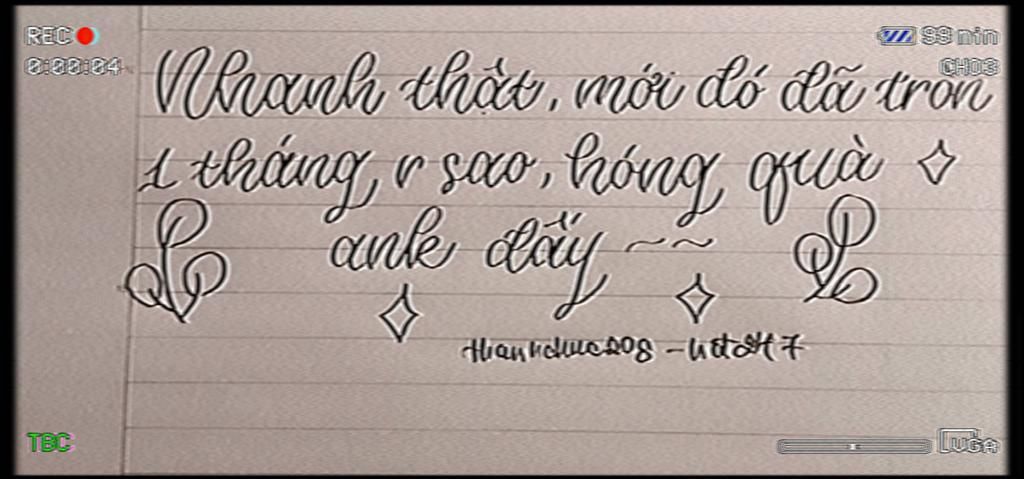 REC 99 min
0:00:04 CH03
Nhanh thật, mới đó đã tròn
1 tháng r sao, hóng quà
anh đấy ~~
TBC